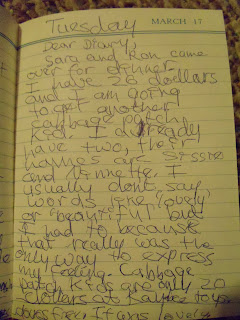 Tuesday
MARCH 17
Dear Diary,
Sara and Ron came
over for dinner.
I have 26 dollars
and I am going
to get another
cabbage patch
Kid. I already
have two, their
names are
and Annette. I
usually don't say
words like "lovely"
or "beautiful" but
I had to because
that really was the
only way to express
my feeling. Cabbage
patch Kids are only 20
dollars at Kaybee toys.
It was lovely